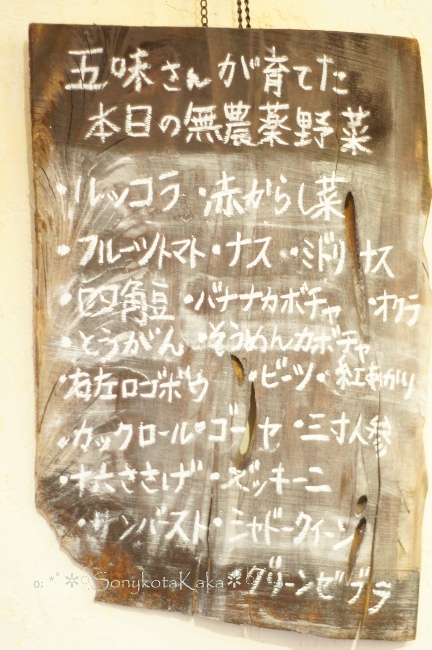 五味さんが育てた
本日の無農薬野菜
・ルッコラ ・赤からし菜
・フルーツトマト・ナス・ミドリナス
・四角豆 ・バナナカボチャ ・オクラ
・とうがん ・そうめんカボチャ
ゴボウ ・ビーツ・紅あかり
・カックロール・ゴーヤ ・三寸人参
ささげ ・ズッキーニ
・サンバースト・ミャドークィーン
・グリーンゼブラ
o: *゜✽ SonykotaKaka✽